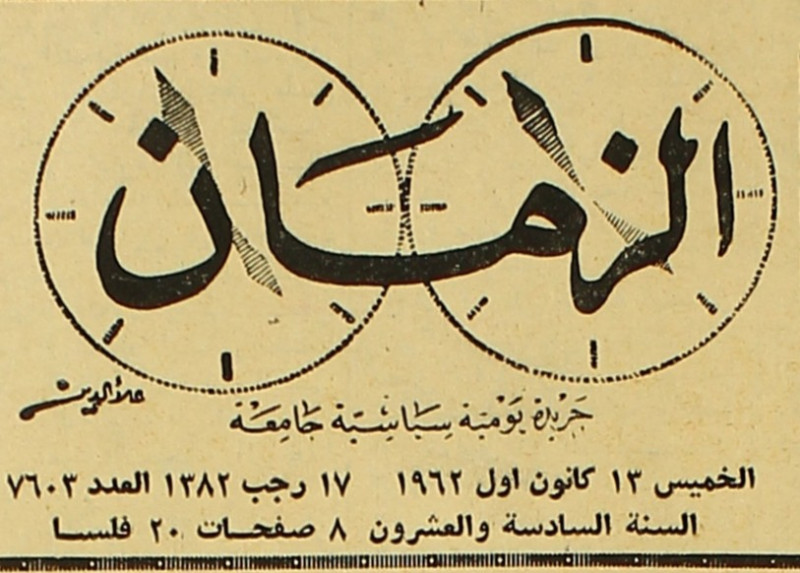 الزمان
علاء الدين
جريدة يومية سياسية جامعة
الخميس ١٣ كانون اول ١٩٦٢ ١٧ رجب ١٣٨٢ العدد ٧٦٠٣
السنة السادسة والعشرون ٨ صفحات ٢٠ فلسا